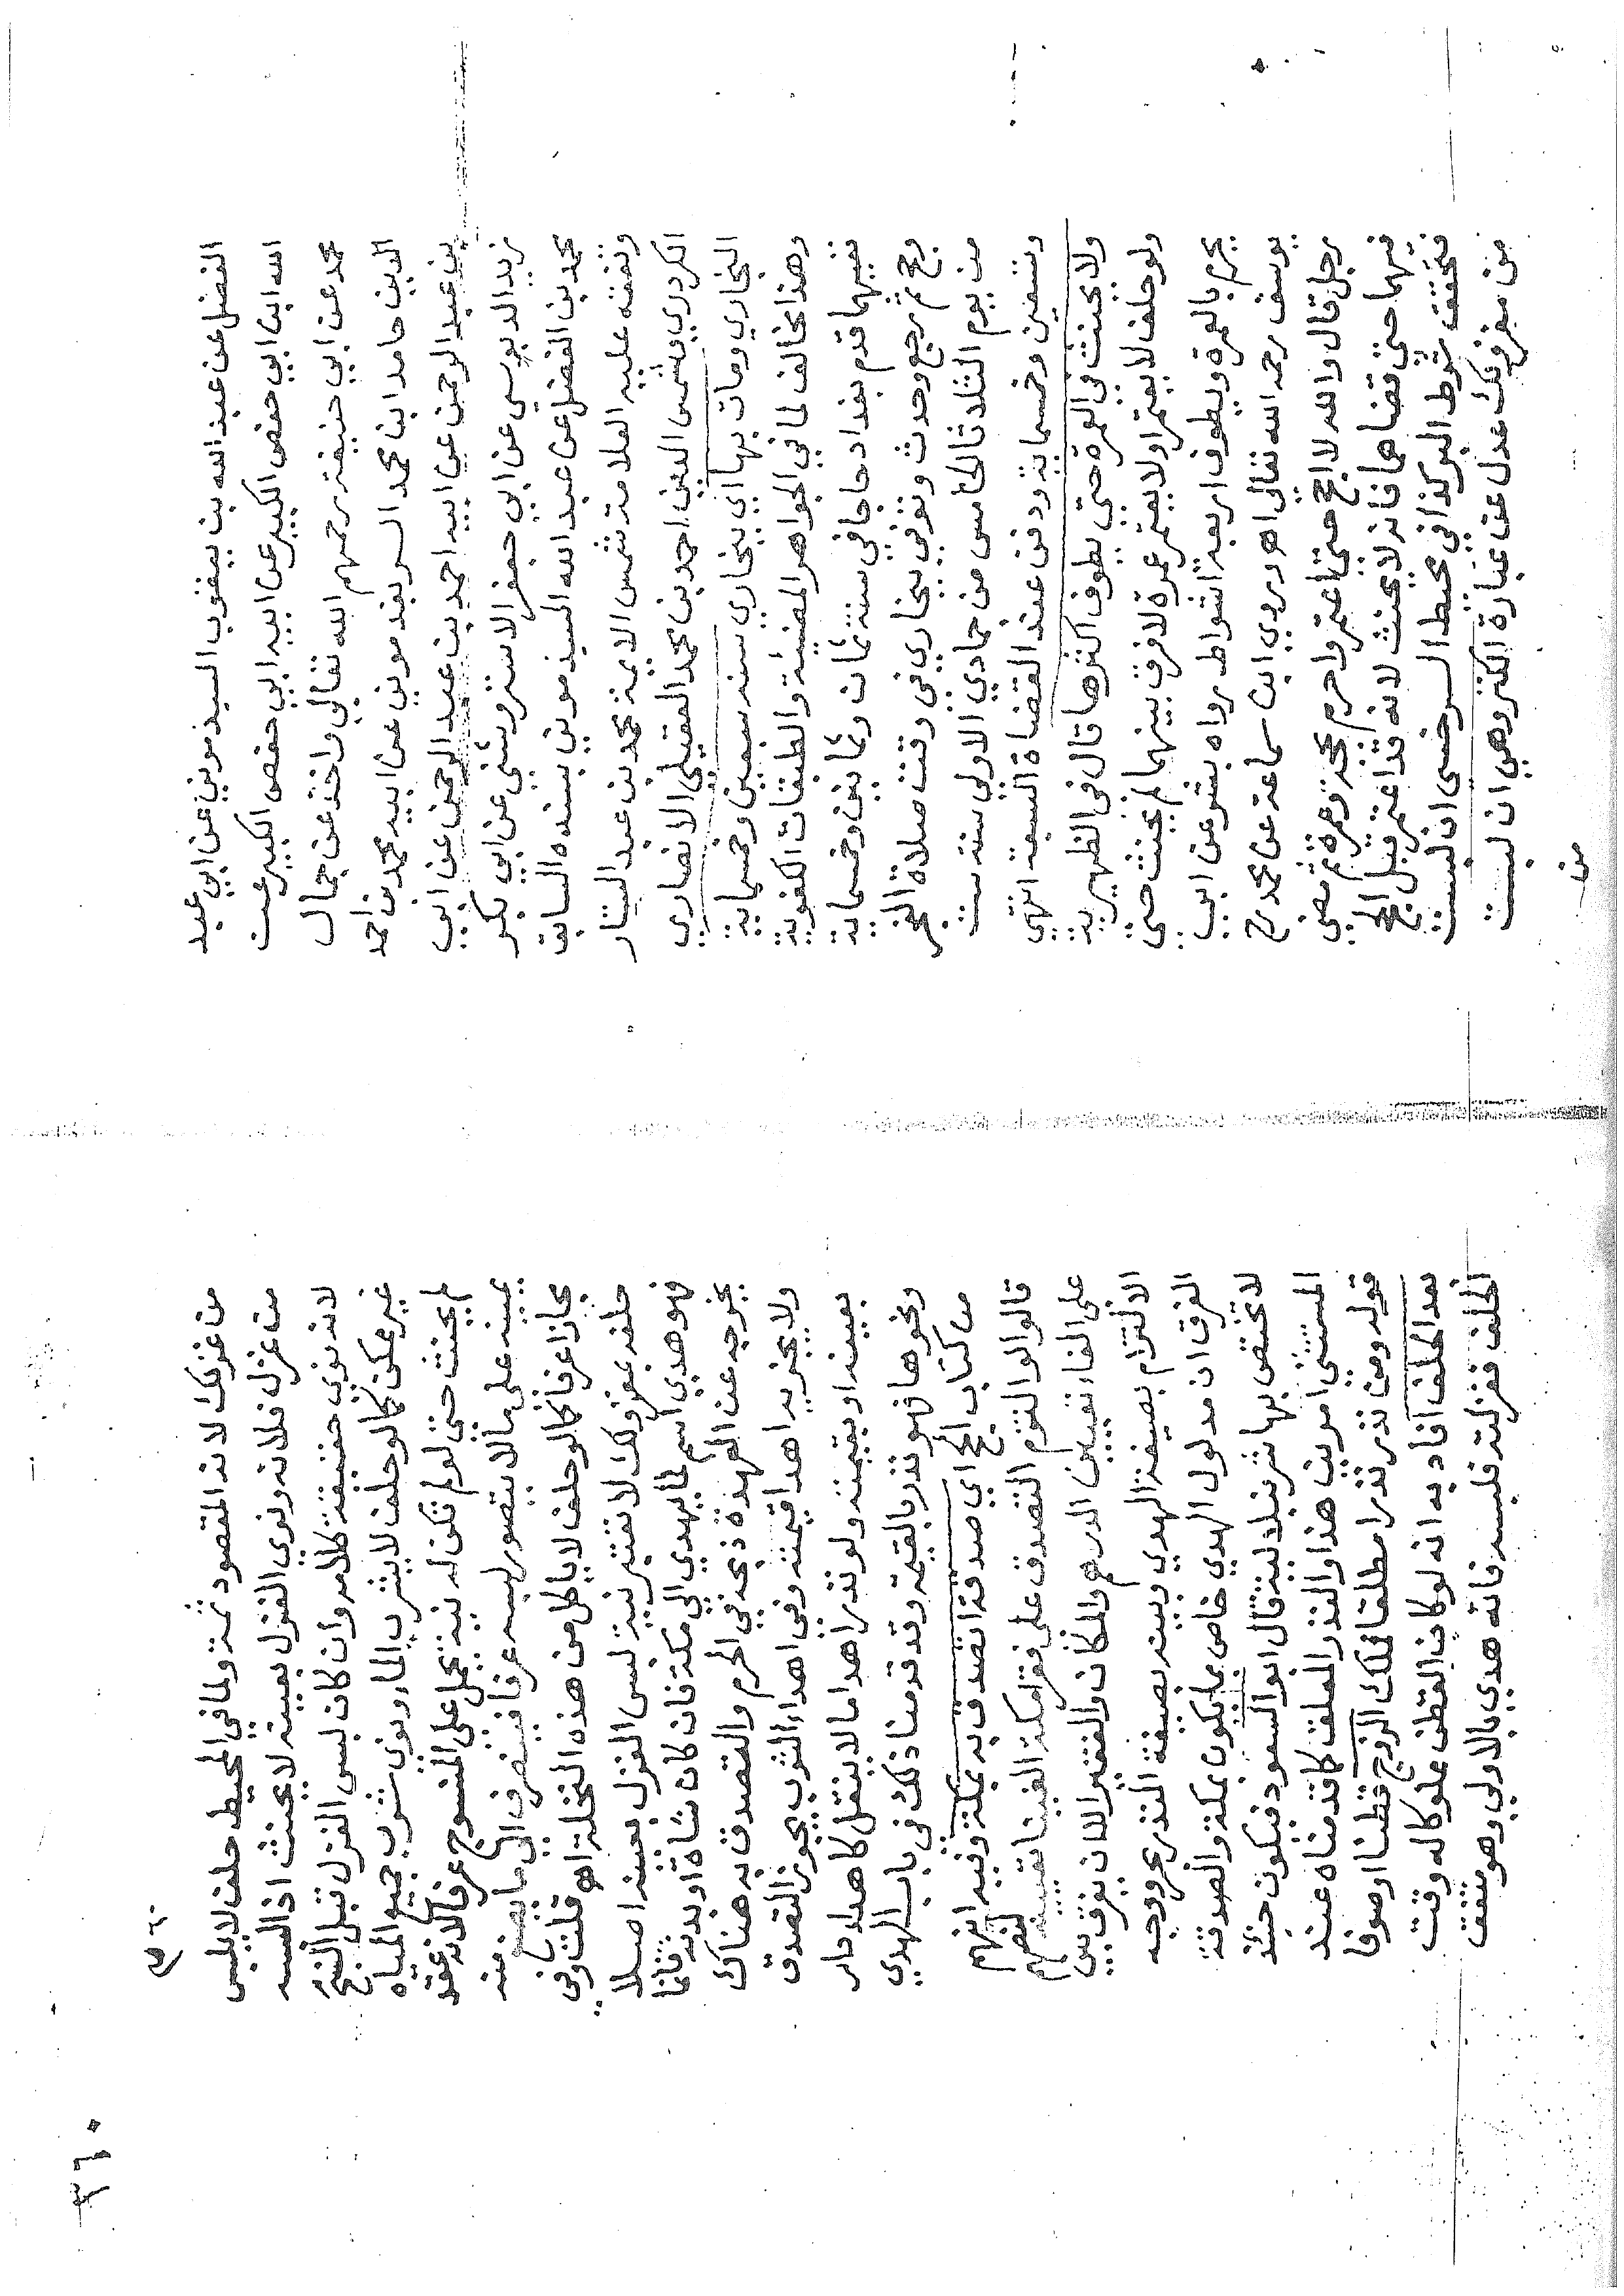 الفضل عن عبد الله بن يعقوب السيذموني عن ابي عبد
الله ابن ابي حفص الكبير عن ابيه ابي حفص الكبير عن
محمد عن ابي حنيفة رحمهم الله تعالي واخذ عن جمال
الدين حامد ابن محمد السريغدموني عن ابيه محمد بن احمد
بن عبد الرحمن عن ابيه احمد بن عبد الرحمن عن ابي
زيد الدبوسي عن ابي جعفر الاستروشني عن ابي بكر
محمد بن الفضل عن عبد الله السيذموني بسنده السابق
وتفقه عليه العلامة شمس الايمة محمد بن عبد الستار
الكردري وشمس الدين احمد بن محمد العقيلي الانصاري
البخاري ومات بها اي ببخاري سنه سبعين وخمسماية
وهذا مخالف لما في الجواهر المضيئة والطبقات الكفوية
ففيهما قدم بغداد حاجا في سنة ثمان وثمانين وخمسماية
وحج ثم رجع وحدث وتوفي ببخاري في وقت صلاة الفجر
من يوم الثلاثا الخامس من جمادي الاولي سنة ست
وتسعين وخمسماية ودفن عند القضاة السبعة انتهي
ولا يحنث في العمرة حتي يطوف اكثرها قال في الظهيرية
ولو حلف لا يعتمر او لا يعتمر عمرة لا فرق بينهما لم يحنث حتي
يحرم بالعمرة ويطوف اربعة اشواط رواه بشر عن ابي
يوسف رحمه الله تعالي اهـ وروي ابن سماعة عن محمد رح
رجل قال والله لا احج حتي اعتمر واحرم بحجة وعمرة ثم مضي
فيهما حتي قضاهما فانه لا يحنث لانه قد اعتمر قبل الحج
فتحقق شرط البر كذا في محيط السرخسي ان لبست
من مغزولك عدل عن عبارة الكنز وهي ان لبست
من
٣٦٠
من غزلك لانه المقصود ثمة ولما في المحيط حلف لا يلبس
من غزل فلانة ونوي الغزل بعينه لا يحنث اذا لبسه
لانه نوي حقيقة كلامه وان كان لبس الغزل قبل النسج
غير ممكن كما لو حلف لا يشرب الماء ونوي شرب جميع المياه
لم يحنث حتي لو لم تكن له نية يحمل علي المنسوج عرفا لانه عقد
يمينه علي ما لا يتصور لبسه عرفا فينصرف الي ما يصنع منه
مجازا عرفا كما لو حلف لا ياكل من هذه النخلة اهـ قلت وفي
حلفه بمغزولك لا تعتبر نية لبس الغزل بعينه اصلا
فهو هدي اسم لما يهدي الي مكة فان كان شاة او بدنة فانما
يخرجه عن العهدة ذبحه في الحرم والتصدق به هناك
ولا يجزيه اهداء قيمته وفي اهداء الثوب يجوز التصدق
بعينه او بقيمته ولو نذر اهداء ما لا ينقل كاهداء دار
ونحوها فهو نذر بالقيمة وقد قدمنا ذلك في باب الهدي
من كتاب الحج اي صدقة اتصدق به بمكة وفيه انهم
قالوا لو التزم التصدق علي فقرا مكة الغينا تعيينهم
علي الفاء تعيين الدرهم والمكان والفقير الا ان يفرق بين
الالتزام بصيغة الهدي وبينه بصيغة النذر بحر ووجه
الفرق ان مدلول الهدي خاص بما يكون بمكة والصدقة
لا تختص بها شرنبلالية قال ابو السعود فيكون حينئذ
المستثني امرين هذا والنذر المعلق كما قدمناه عند
قوله ومن نذر نذرا مطلقا فملك الزوج قطنا او صوفا
بعد الحلف افاد به انه لو كان القطن مملوكا له وقت
الحلف فغزلته فلبسه فانه هدي بالاولي وهو متفق